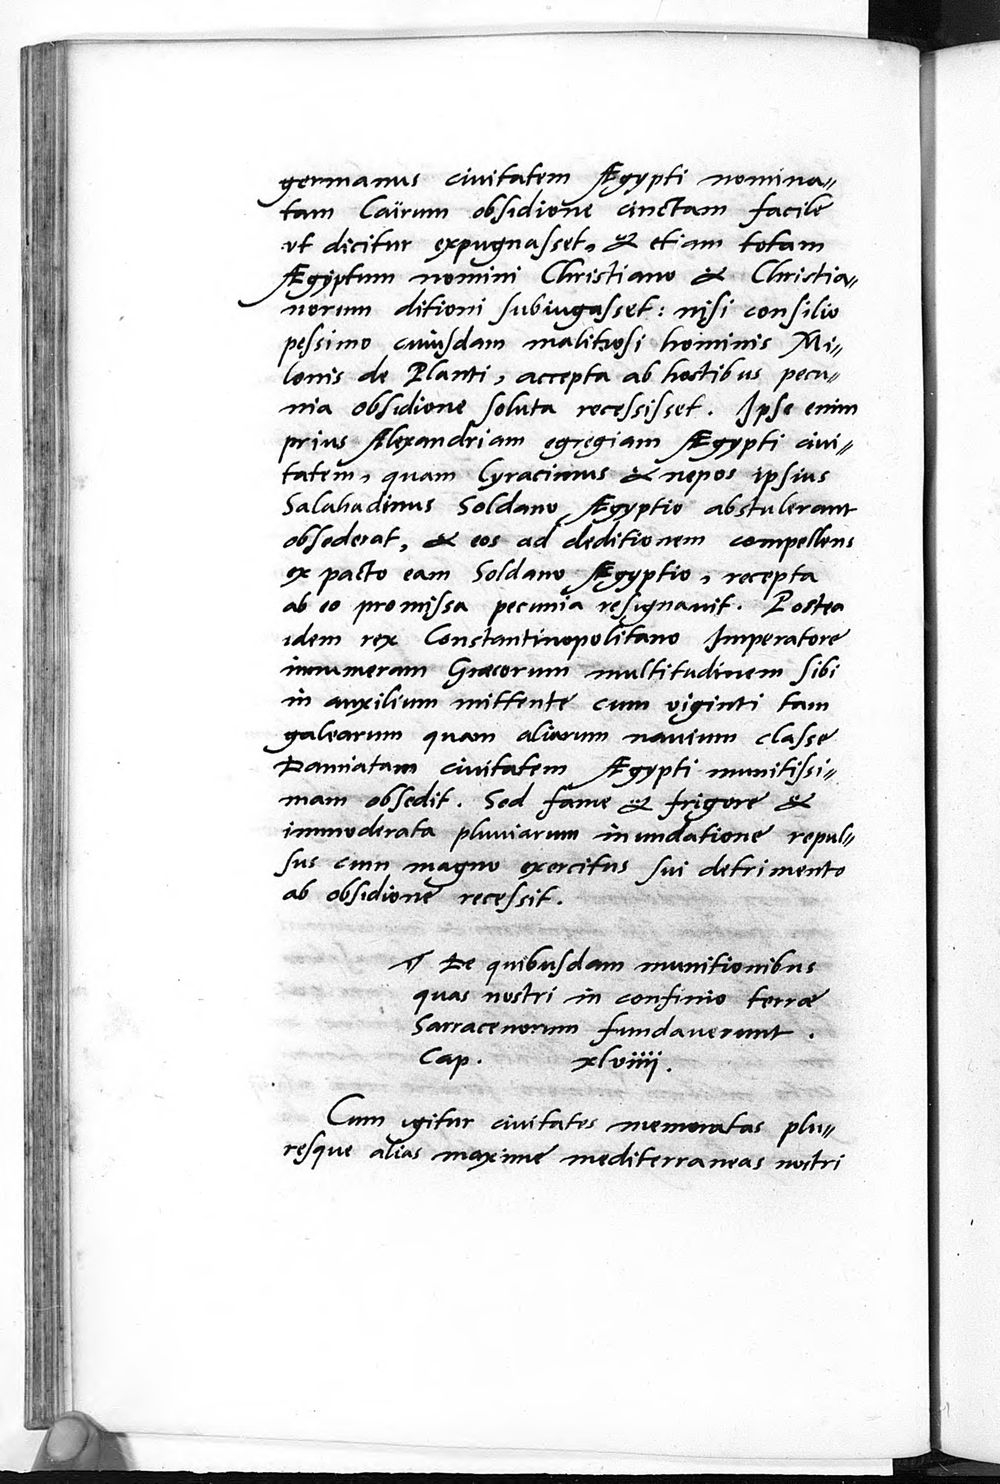 germanus ciuitatem Ægypti nomina„
tam Caïrum obsidione cinctam facile
vt dicitur expugnasset, & etiam totam
Ægiptum nomini Christiano & Christia„
norum ditioni subiugasset: nisi consilio
pessimo cuiusdam malitiosi hominis Mi„
lonis de Planti, accepta ab hostibus pecu„
nia obsidione soluta recessisset. Ipse enim
prius Alexandriam egregiam Ægypti ciui„
tatem, quam Cyracinus & nepos ipsius
Salahadinus Soldano Ægyptio abstulerant
obsederat, & eos ad deditionem compellens
ex pacto eam Soldano Ægyptio, recepta
ab eo promissa pecunia resignauit. Postea
idem rex Constantinopolitano Imperatore
innumeram Græcorum multitudinem sibi
in auxilium mittente cum viginti tam
galearum quam aliarum nauium classe
Damiatam ciuitatem Ægypti munitissi„
mam obsedit. Sed fame & frigore &
immoderata pluuiarum inundatione repul„
sus cum magno exercitus sui detrimento
ab obsidione recessit.
¶ De quibusdam munitionibus
quas nostri in confinio terræ
Sarracenorum fundauerunt.
Cap. xlviiii.
Cum igitur ciuitates memoratas plu„
resque alias maxime mediterraneas nostri